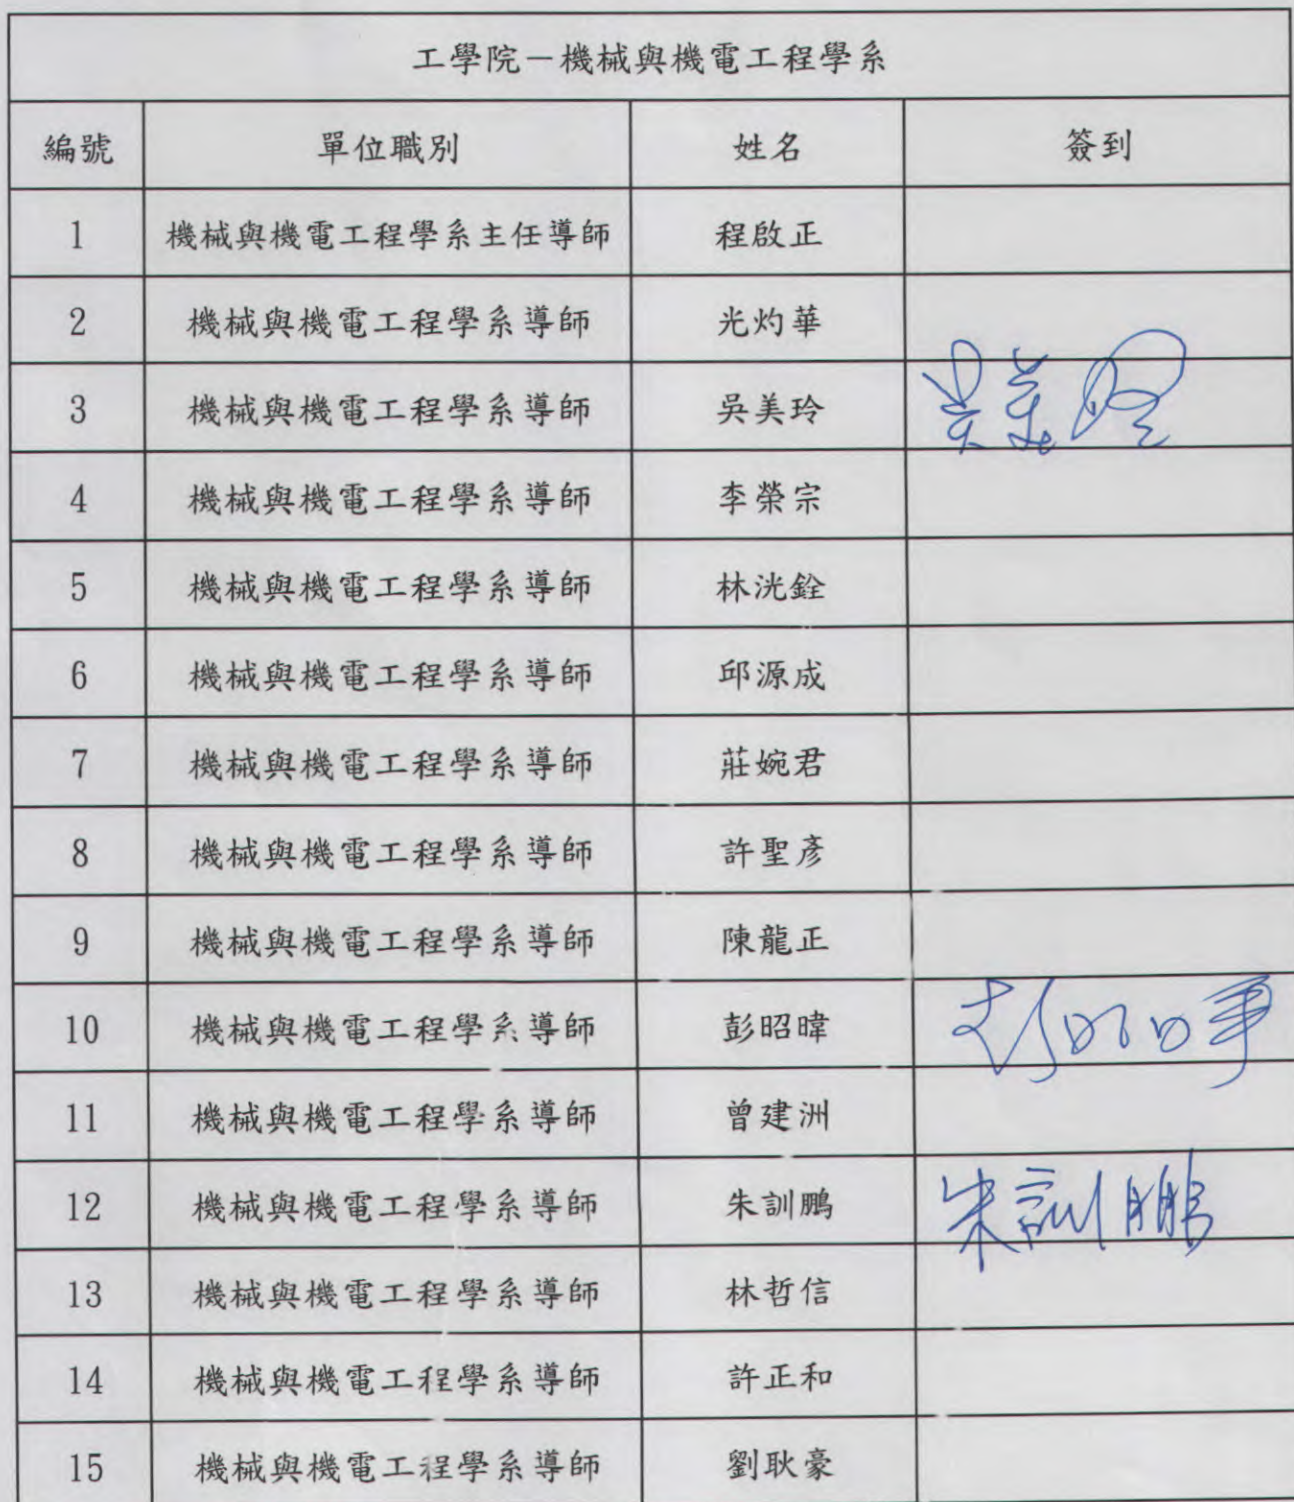 工學院－機械與機電工程學系
編號 單位職別 姓名 簽到
1 機械與機電工程學系主任導師 程啟正
2 機械與機電工程學系導師 光灼華
3 機械與機電工程學系導師 吳美玲 吳美玲
4 機械與機電工程學系導師 李榮宗
5 機械與機電工程學系導師 林洸銓
6 機械與機電工程學系導師 邱源成
7 機械與機電工程學系導師 莊婉君
8 機械與機電工程學系導師 許聖彥
9 機械與機電工程學系導師 陳龍正
10 機械與機電工程學系導師 彭昭暐 彭昭暐
11 機械與機電工程學系導師 曾建洲
12 機械與機電工程學系導師 朱訓鵬 朱訓鵬
13 機械與機電工程學系導師 林哲信
14 機械與機電工程學系導師 許正和
15 機械與機電工程學系導師 劉耿豪